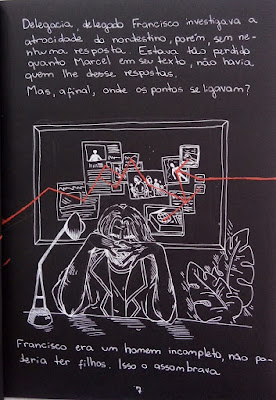 Delegacia, delegado Francisco investigava a
atrocidade do nordestino, porém, sem ne-
nhuma resposta. Estava tão perdido
quanto Marcel em seu texto, não havia
quem lhe desse respostas.
Mas, afinal, onde os pontos se ligavam?
Francisco era um homem incompleto, não po-
deria ter filhos. Isso o assombrava
7